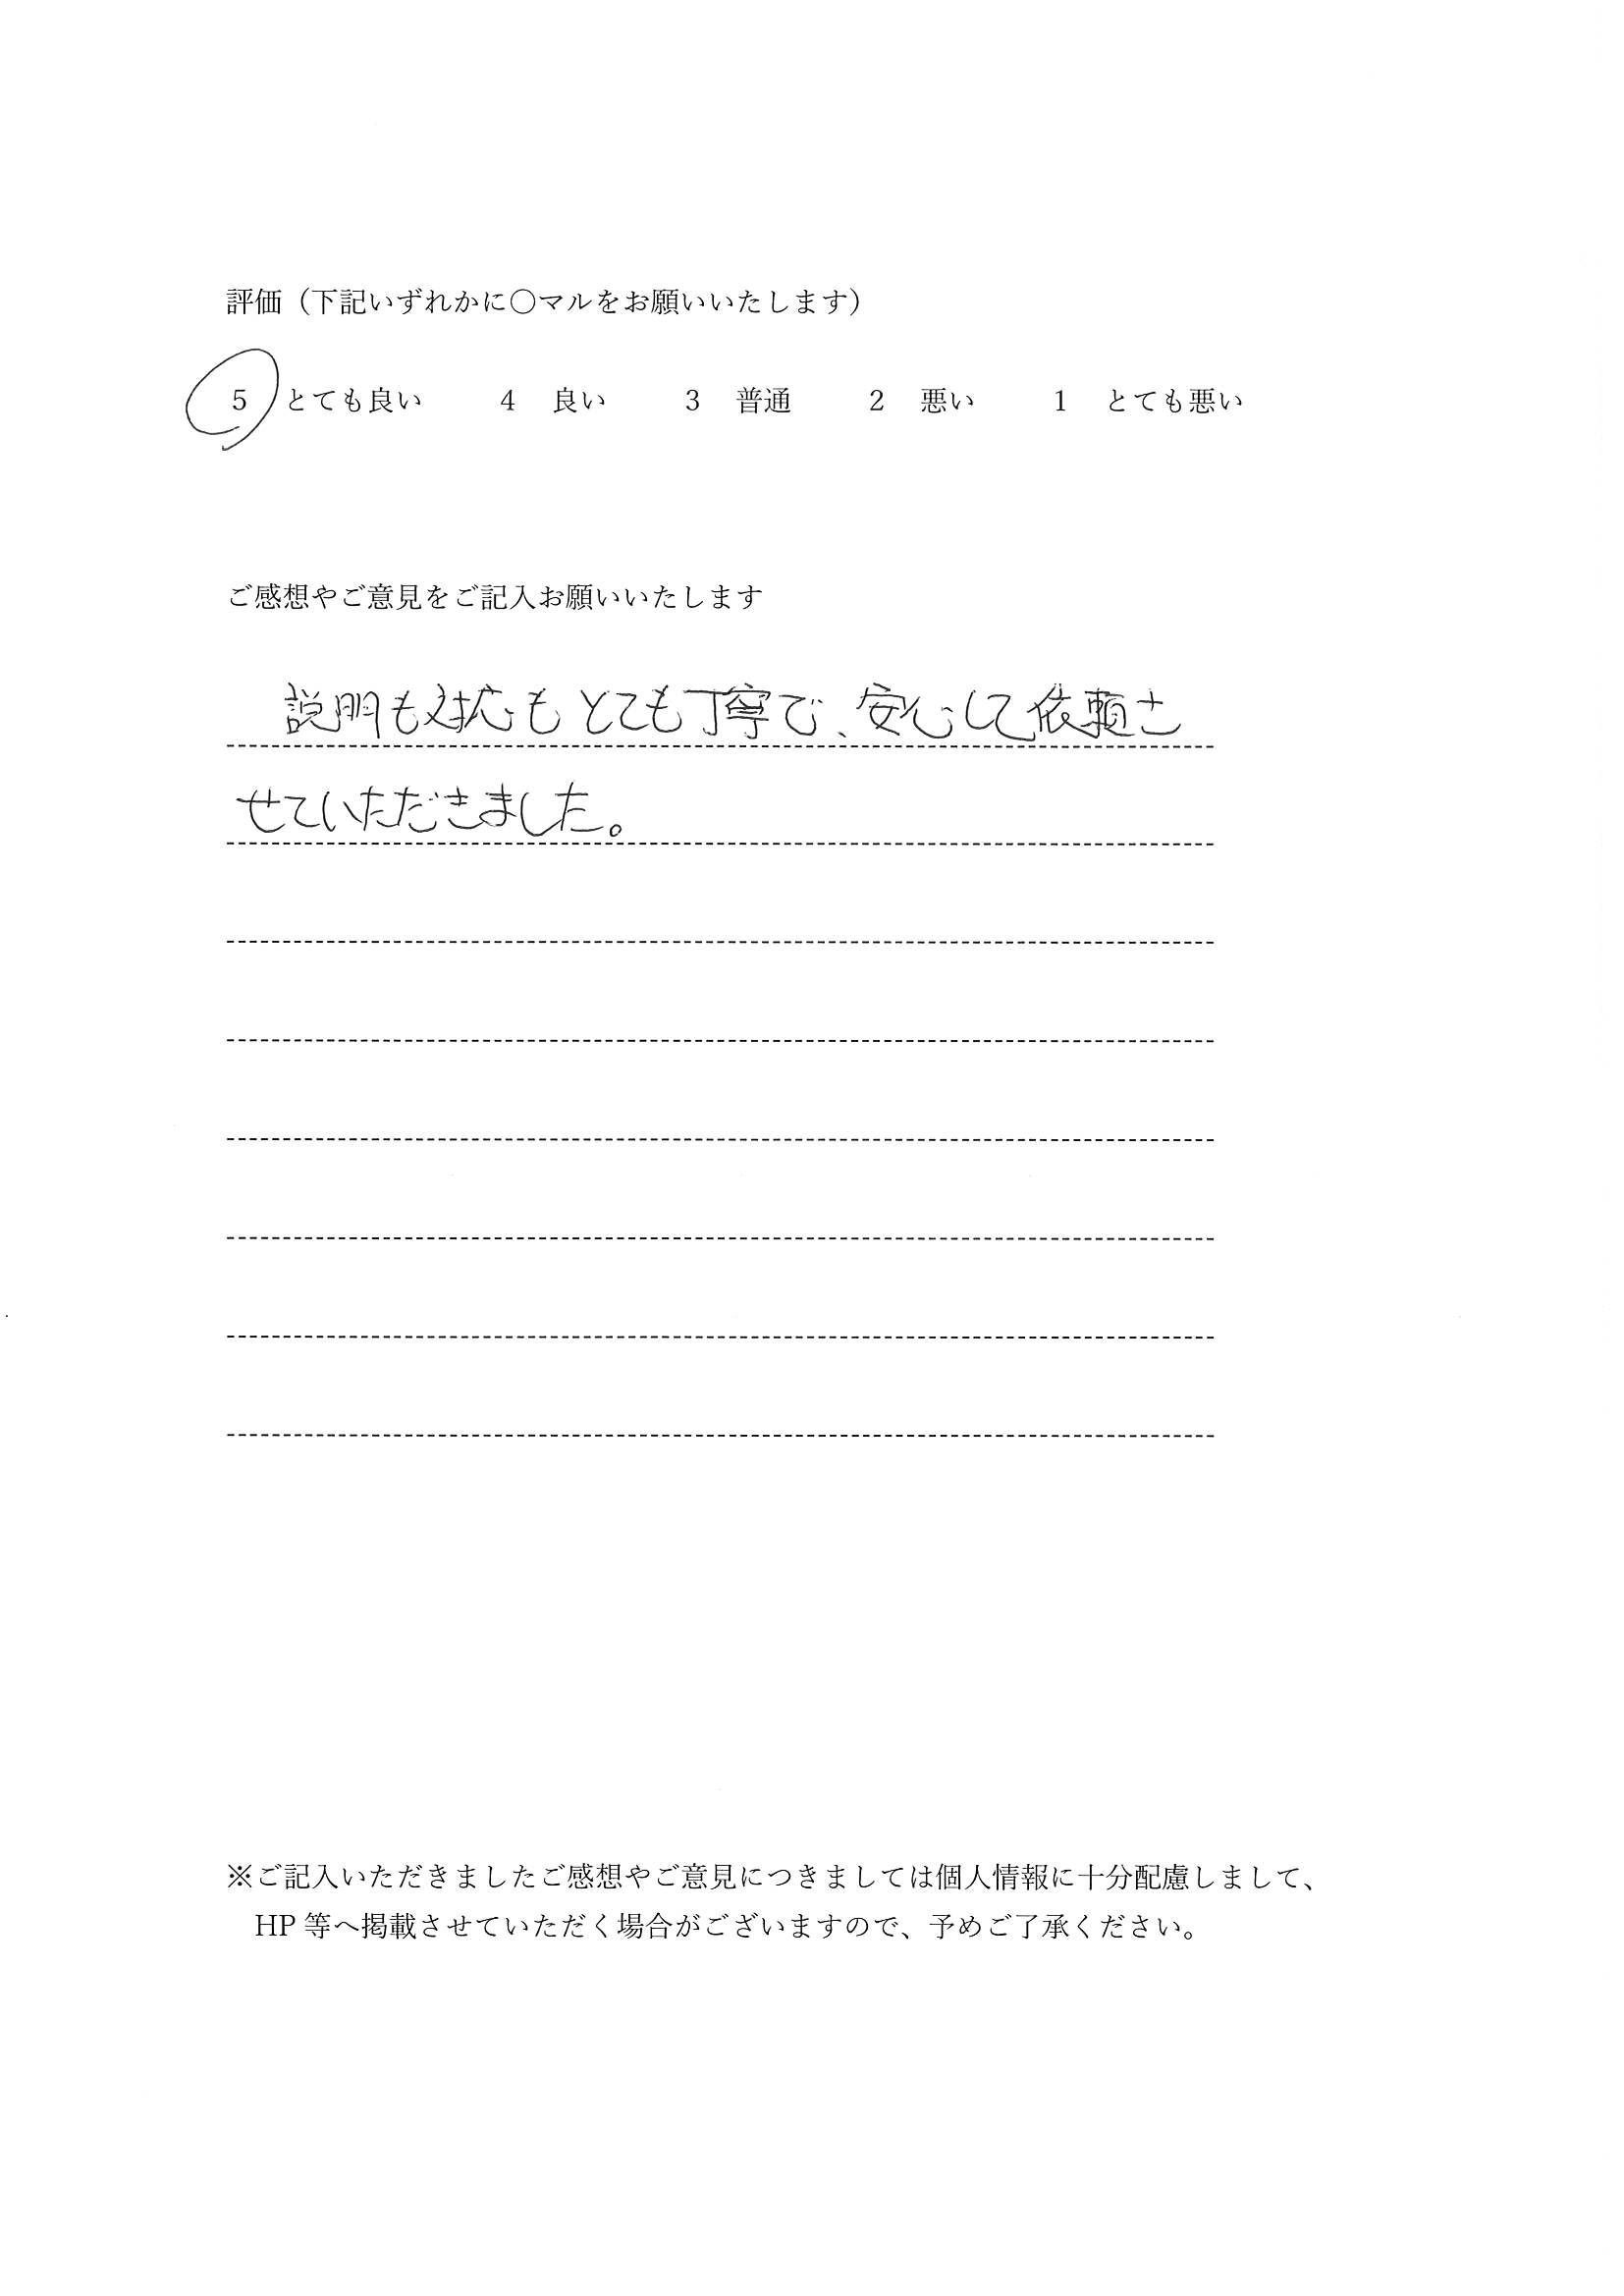 評価（下記いずれかに〇マルをお願いいたします）
5　とても良い　　4　良い　　3　普通　　2　悪い　　1　とても悪い
ご感想やご意見をご記入お願いいたします
説明も対応もとても丁寧で、安心して依頼さ
せていただきました。
※ご記入いただきましたご感想やご意見につきましては個人情報に十分配慮しまして、
HP 等へ掲載させていただく場合がございますので、予めご了承ください。